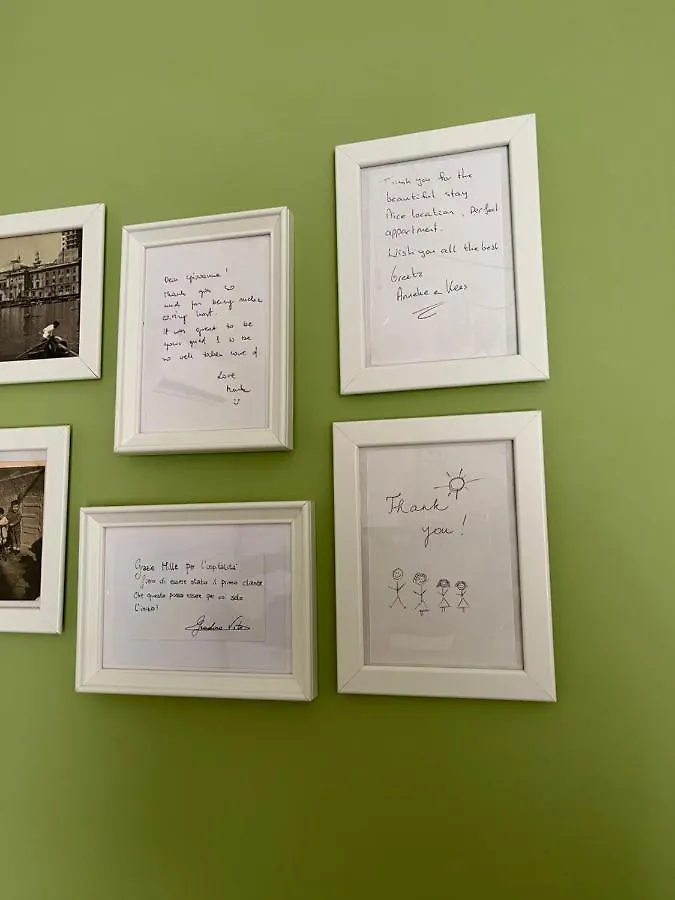 Dear Giovanna!
Thank you
and for being such a
caring host.
It was great to be
your guest & to be
so well taken care of
Love
Thank you for the
beautiful stay
Nice location, perfect
appartment.
Wish you all the best
Greetz
Anneke en Kees
Grazie Mille per l'ospitalità
di essere stato il primo cliente
Che questo possa essere per voi solo
l'inizio!
Thank
you!